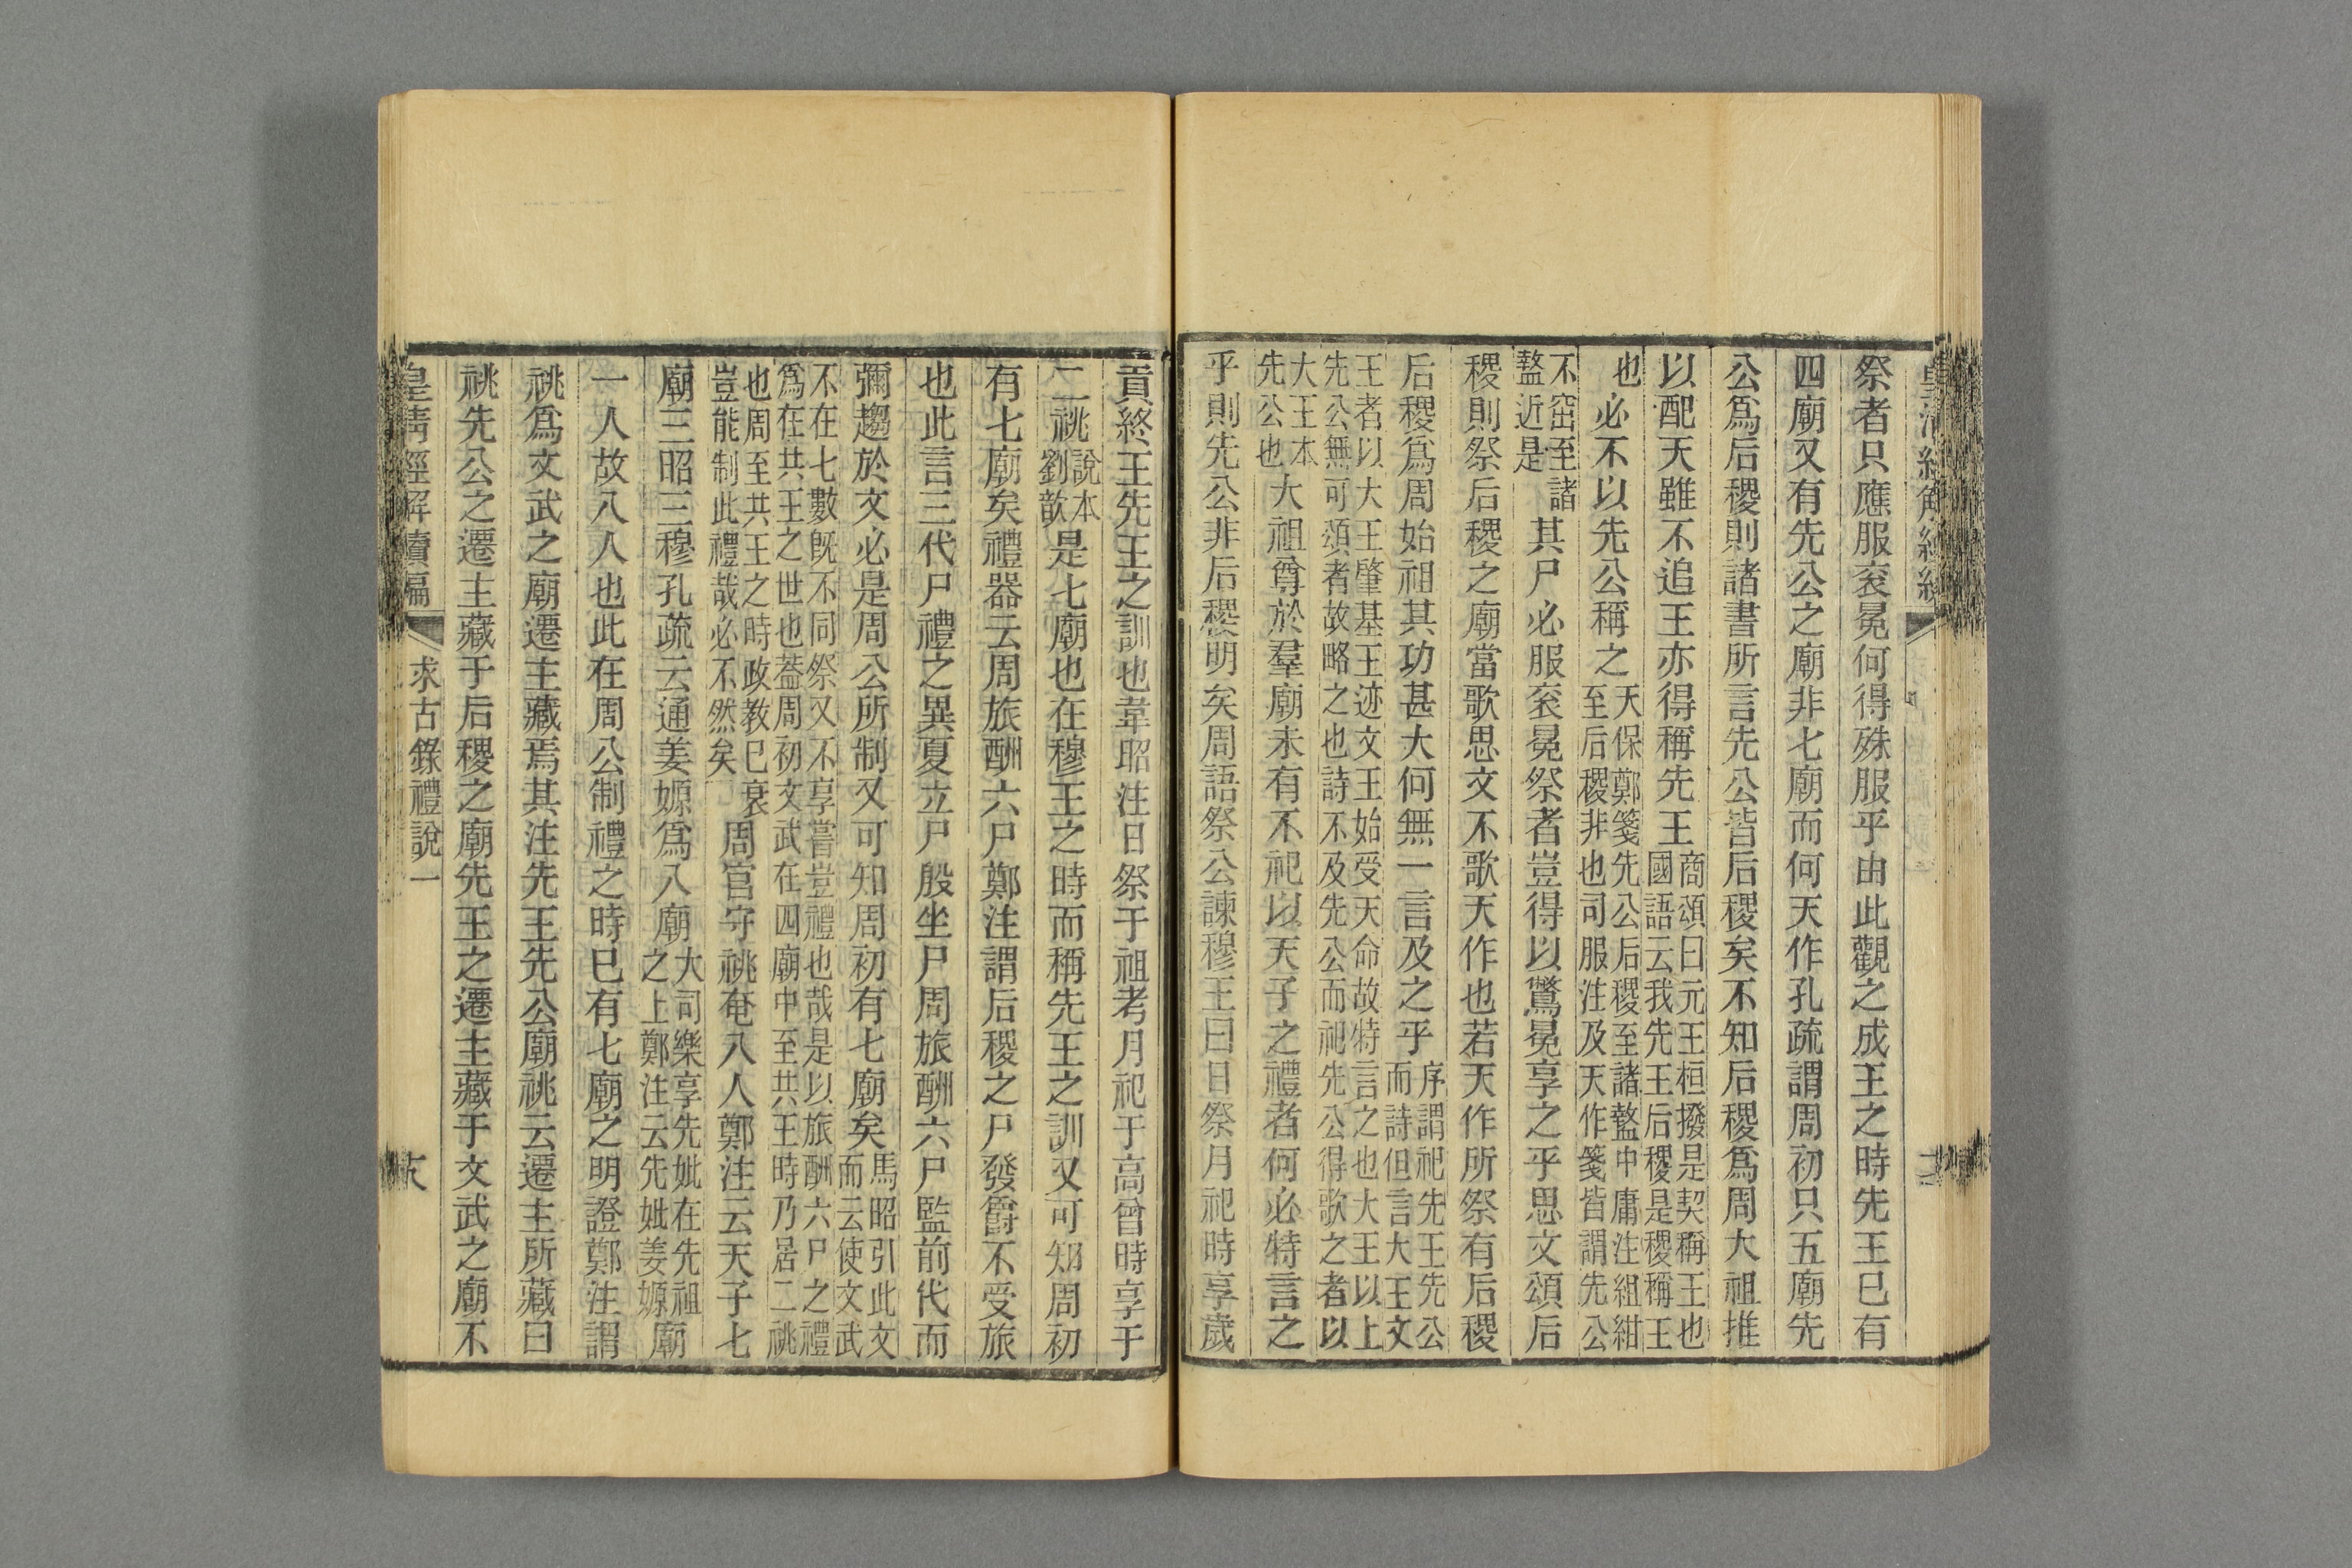 祭者只應服袞冕何得殊服乎由此觀之成王之時先王已有
四廟又有先公之廟非七廟而何天作孔疏謂周初只五廟先
公爲后稷則諸書所言先公皆后稷矣不知后稷爲周大祖推
以配天雖不追王亦得稱先王商頌曰元王桓撥是契稱王也國語云我先王后稷是稷稱王
也必不以先公稱之天保鄭箋先公后稷至諸盩中庸注組紺至后稷非也司服注及天作箋皆謂先公
不窋至諸盩近是其尸必服袞冕祭者豈得以鷩冕享之乎思文頌后
稷則祭后稷之廟當歌思文不歌天作也若天作所祭有后稷
后稷爲周始祖其功甚大何無一言及之乎序謂祀先王先公而詩但言大王文
王者以大王肇基王迹文王始受天命故特言之也大王以上先公無可頌者故略之也詩不及先公而祀先公得歌之者以
大王本先公也大祖尊於羣廟未有不祀以天子之禮者何必特言之
乎則先公非后稷明矣周語祭公諫穆王曰日祭月祀時享歲
貢終王先王之訓也韋昭注日祭于祖考月祀于高曾時享于
二祧說本劉歆是七廟也在穆王之時而稱先王之訓又可知周初
有七廟矣禮器云周旅酬六尸鄭注謂后稷之尸發爵不受旅
也此言三代尸禮之異夏立尸殷坐尸周旅酬六尸監前代而
彌趨於文必是周公所制又可知周初有七廟矣馬昭引此文而云使文武
不在七數既不同祭又不享嘗豈禮也哉是以旅酬六尸之禮爲在共王之世也葢周初文武在四廟中至共王時乃居二祧
也周至共王之時政教已衰豈能制此禮哉必不然矣周官守祧奄八人鄭注云天子七
廟三昭三穆孔疏云通姜嫄爲八廟大司樂享先妣在先祖之上鄭注云先妣姜嫄廟
一人故八人也此在周公制禮之時已有七廟之明證鄭注謂
祧爲文武之廟遷主藏焉其注先王先公廟祧云遷主所藏曰
祧先公之遷主藏于后稷之廟先王之遷主藏于文武之廟不
皇清經解續編 求古錄禮說一